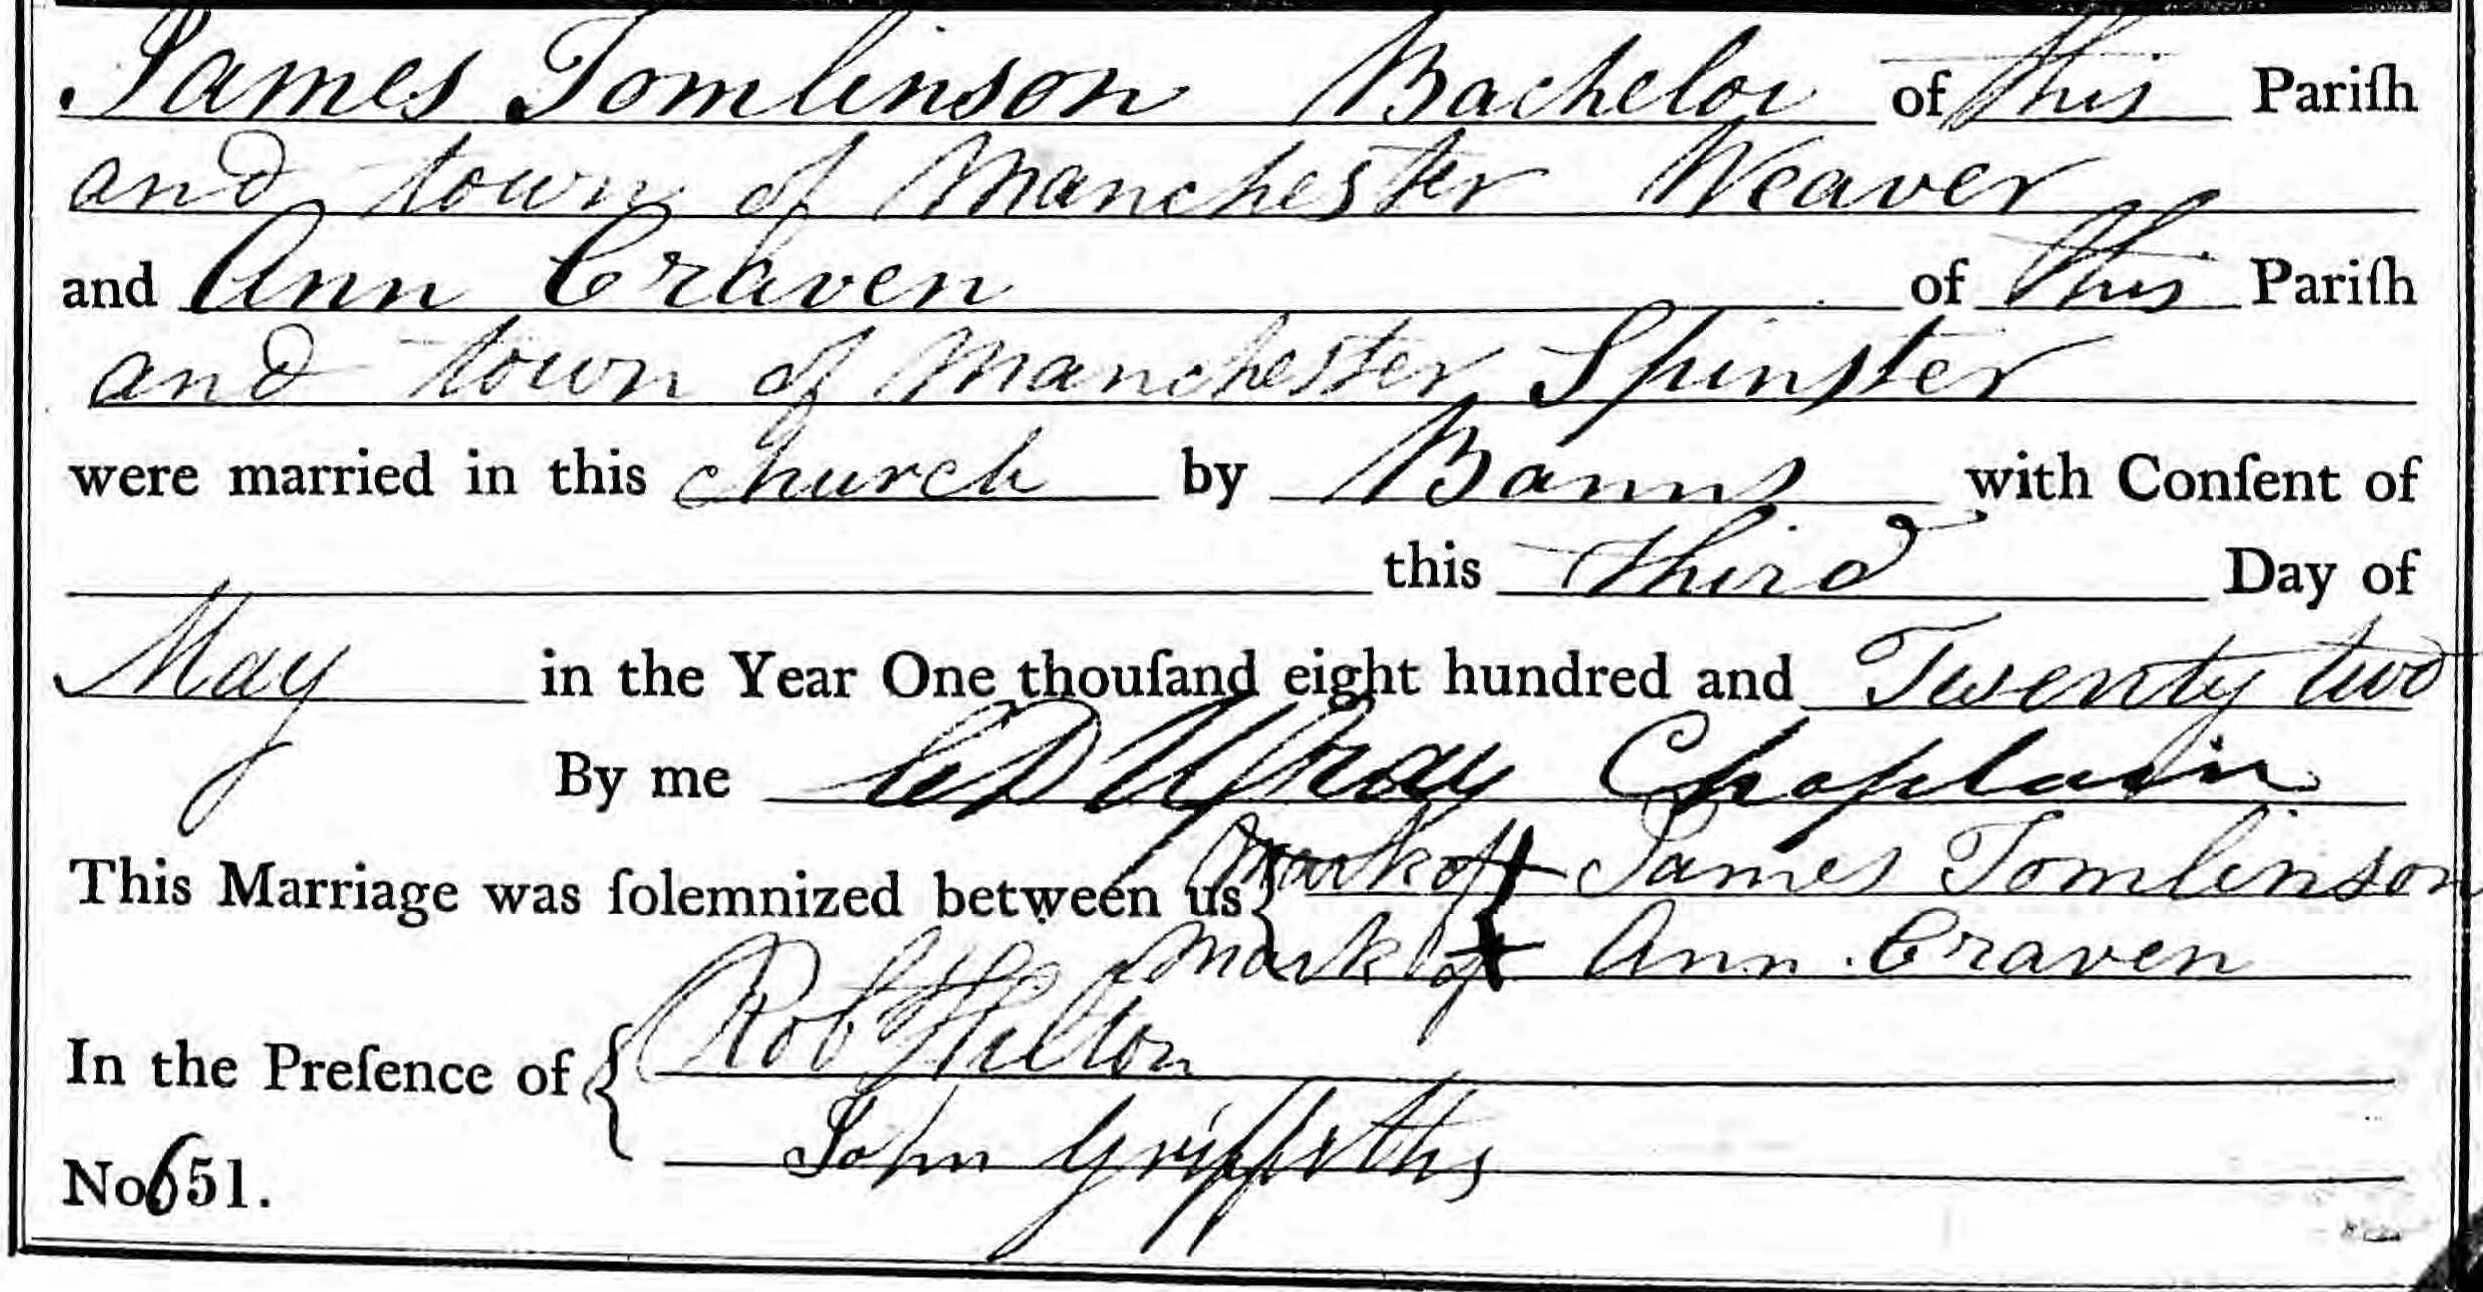 James Tomlinson Bachelor of this Pariſh
and town of Manchester Weaver
and Ann Craven of this Pariſh
and town of Manchester Spinster
were married in this church by Banns with Conſent of
this third Day of
May in the Year One thouſand eight hundred and Twenty two
By me C D Wray Chaplain
This Marriage was ſolemnized between us { Mark of + James Tomlinson
Mark of + Ann Craven
In the Preſence of { Rob Hilton
John Griffiths
No 651.